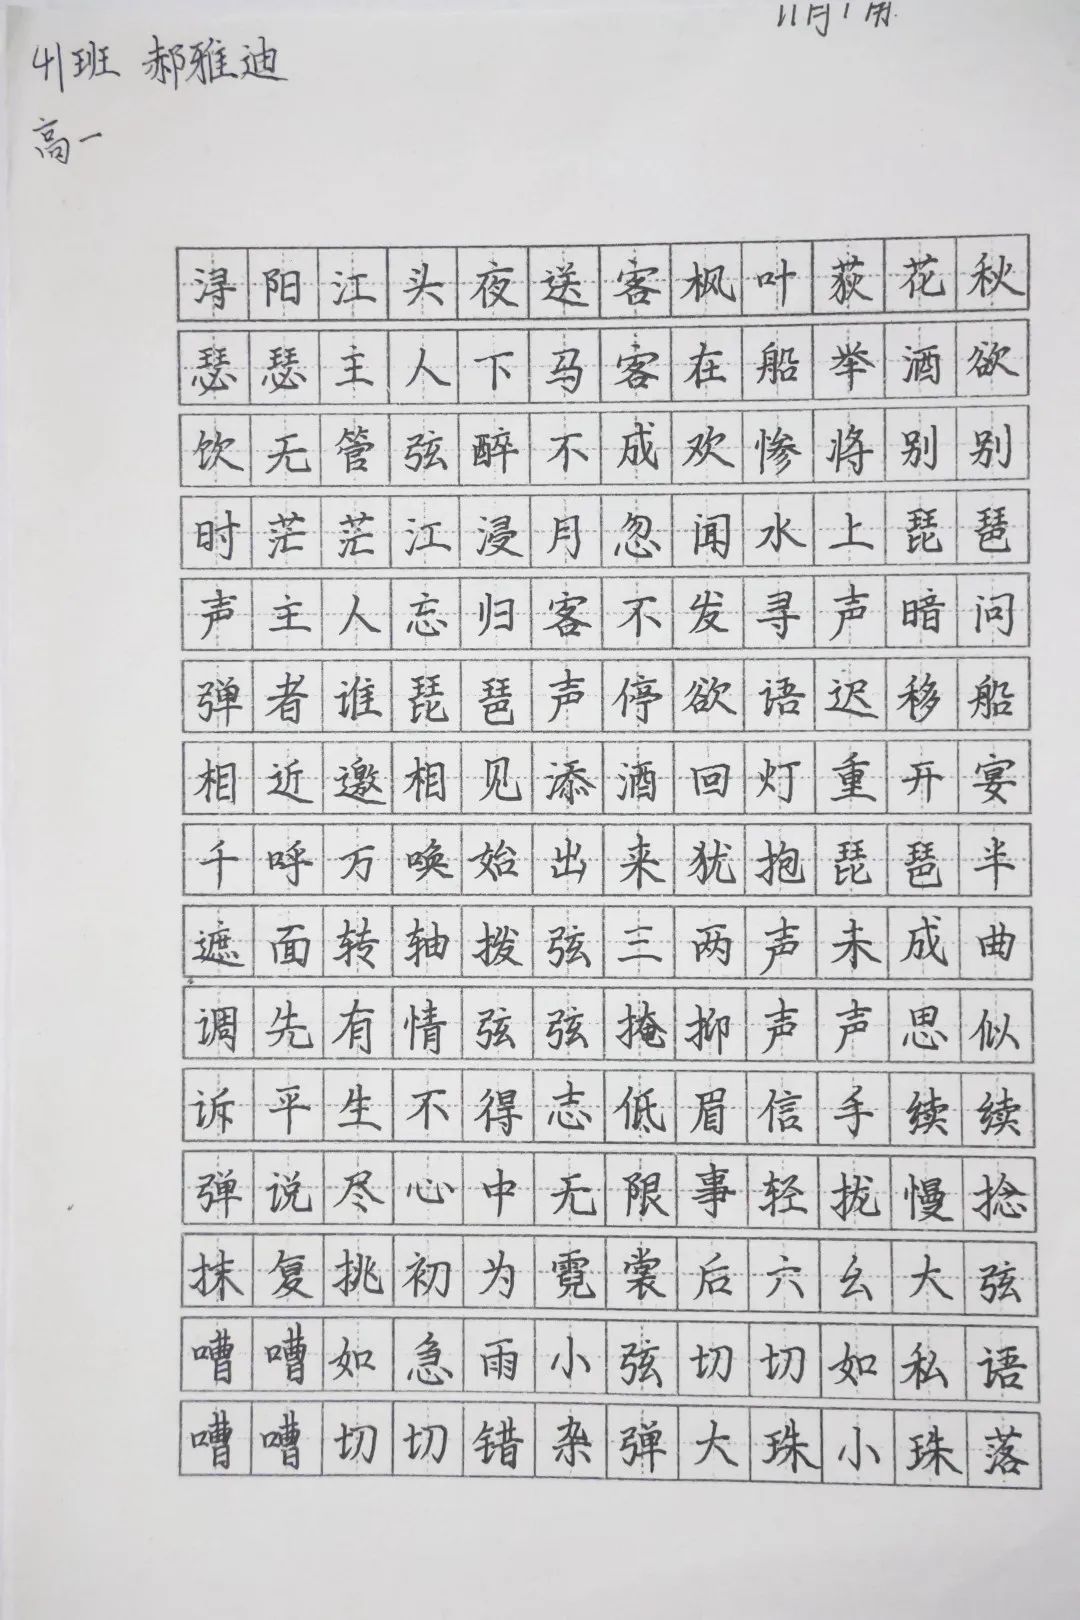 11月1
41班 郝雅迪
高一
浔阳江头夜送客枫叶荻花秋
瑟瑟主人下马客在船举酒欲
饮无管弦醉不成欢惨将别别
时茫茫江浸月忽闻水上琵琶
声主人忘归客不发寻声暗问
弹者谁琵琶声停欲语迟移船
相近邀相见添酒回灯重开宴
千呼万唤始出来犹抱琵琶半
遮面转轴拨弦三两声未成曲
调先有情弦弦掩抑声声思似
诉平生不得志低眉信手续续
弹说尽心中无限事轻拢慢捻
抹复挑初为霓裳后六幺大弦
嘈嘈如急雨小弦切切如私语
嘈嘈切切错杂弹大珠小珠落